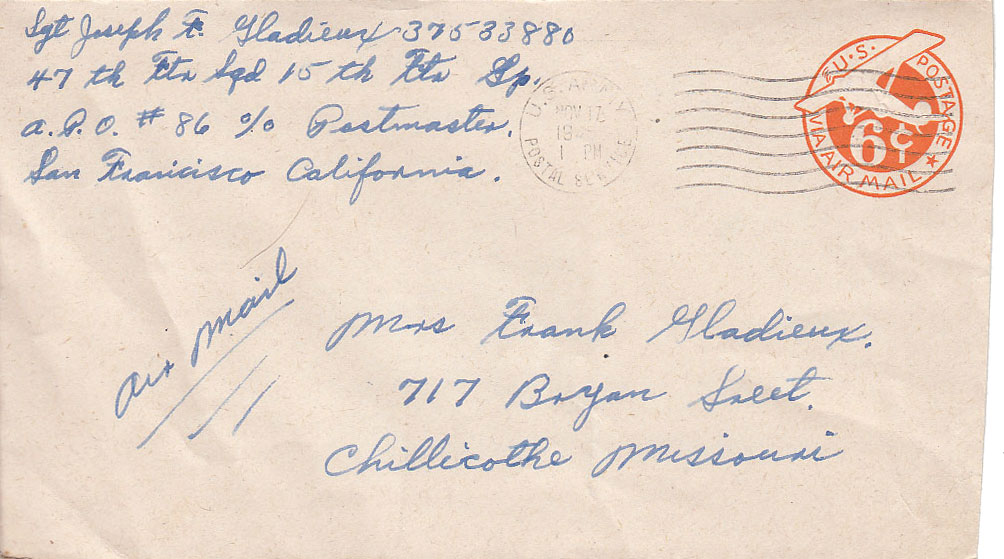 Sgt Joseph F. Gladieux 37533880
47 th Ftr Sqd 15 th Ftr Gp.
A.P.O. # 86 %o Postmaster.
San Francisco California.
U.S. ARMY
NOV 17
19
1 PM
POSTAL SERVICE
U.S. POSTAGE
6¢
VIA AIR MAIL
Air Mail
Mrs Frank Gladieux.
717 Bryan Sreet.
Chillicothe Missouri